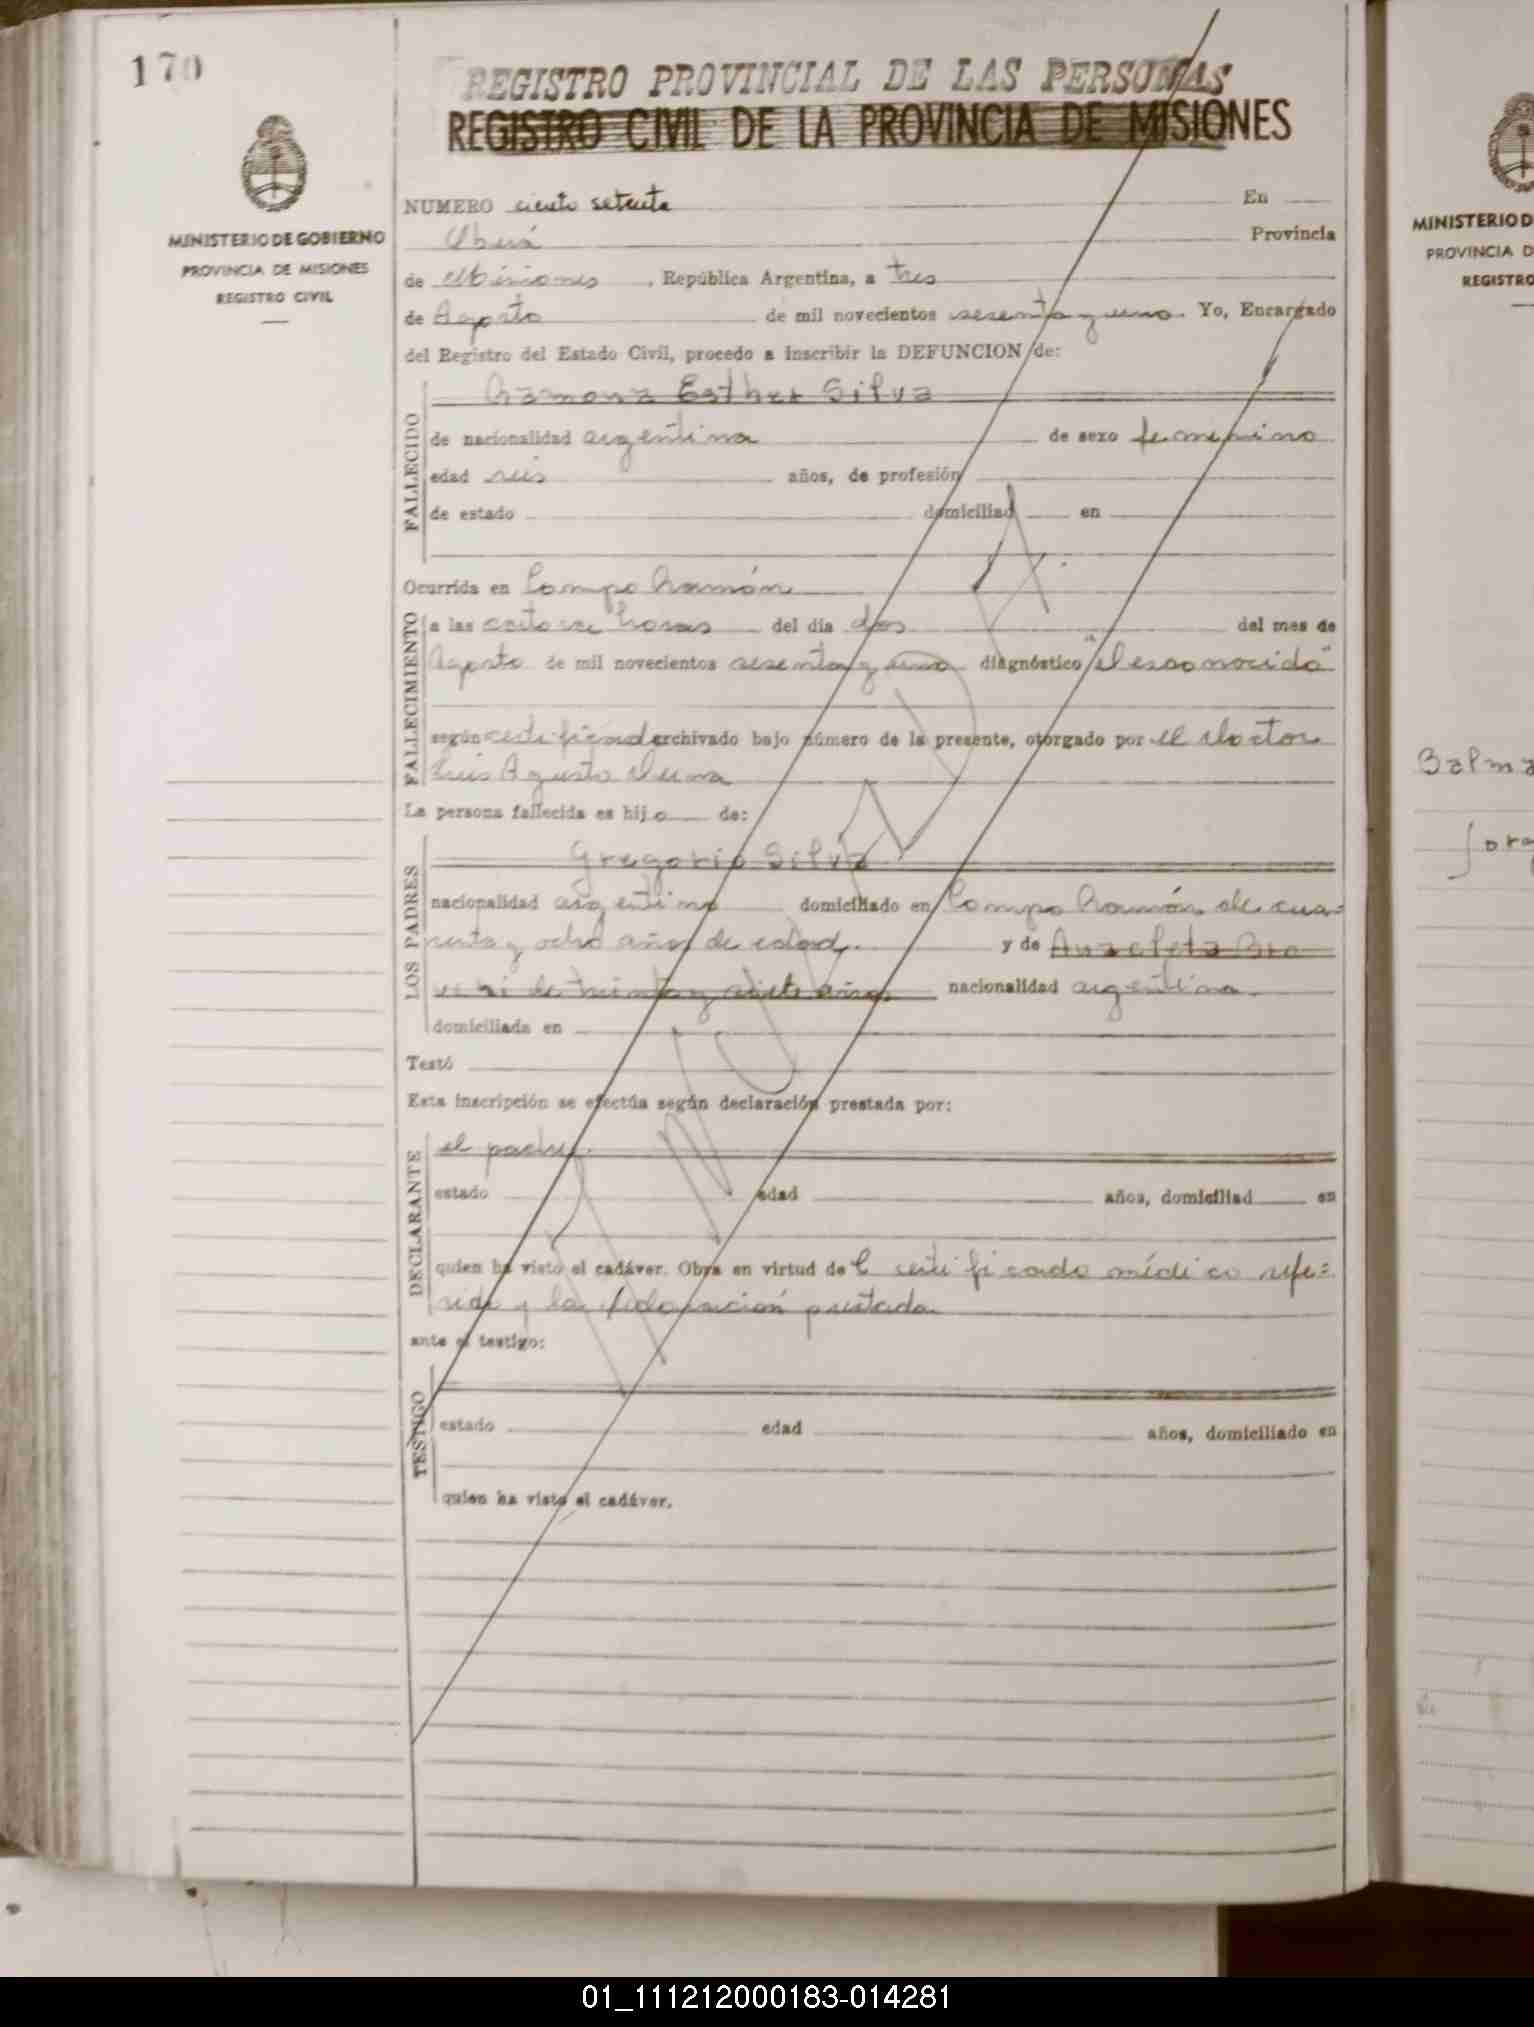 170
REGISTRO PROVINCIAL DE LAS PERSONAS
REGISTRO CIVIL DE LA PROVINCIA DE MISIONES
MINISTERIO DE GOBIERNO
PROVINCIA DE MISIONES
REGISTRO CIVIL
NUMERO ciento setenta En
Oberá Provincia
de Misiones, República Argentina, a tres
de Agosto de mil novecientos sesenta y uno. Yo, Encargado
del Registro del Estado Civil, procedo a inscribir la DEFUNCION de:
FALLECIDO
Ramona Esther Silva
de nacionalidad argentina de sexo femenino
edad seis años, de profesión
de estado domiciliad en
Ocurrida en Campo Ramón
FALLECIMIENTO
a las catorce horas del día dos del mes de
Agosto de mil novecientos sesenta y uno diagnóstico "desconocido"
según certificado archivado bajo número de la presente, otorgado por el doctor
Luis Agusto
La persona fallecida es hija de:
LOS PADRES
Gregorio Silva
nacionalidad argentino domiciliado en Campo Ramón de cua-
renta y ocho años de edad. y de
de treinta y siete años nacionalidad argentina.
domiciliada en
Testó
Esta inscripción se efectúa según declaración prestada por:
DECLARANTE
el padre.
estado edad años, domiciliad en
quien ha visto el cadáver. Obra en virtud del certificado médico refe=
rido y la declaración prestada
ante el testigo:
TESTIGO
estado edad años, domiciliado en
quien ha visto el cadáver.
ANULADA
MINISTERIO D
PROVINCIA D
REGISTRO
01_111212000183-014281